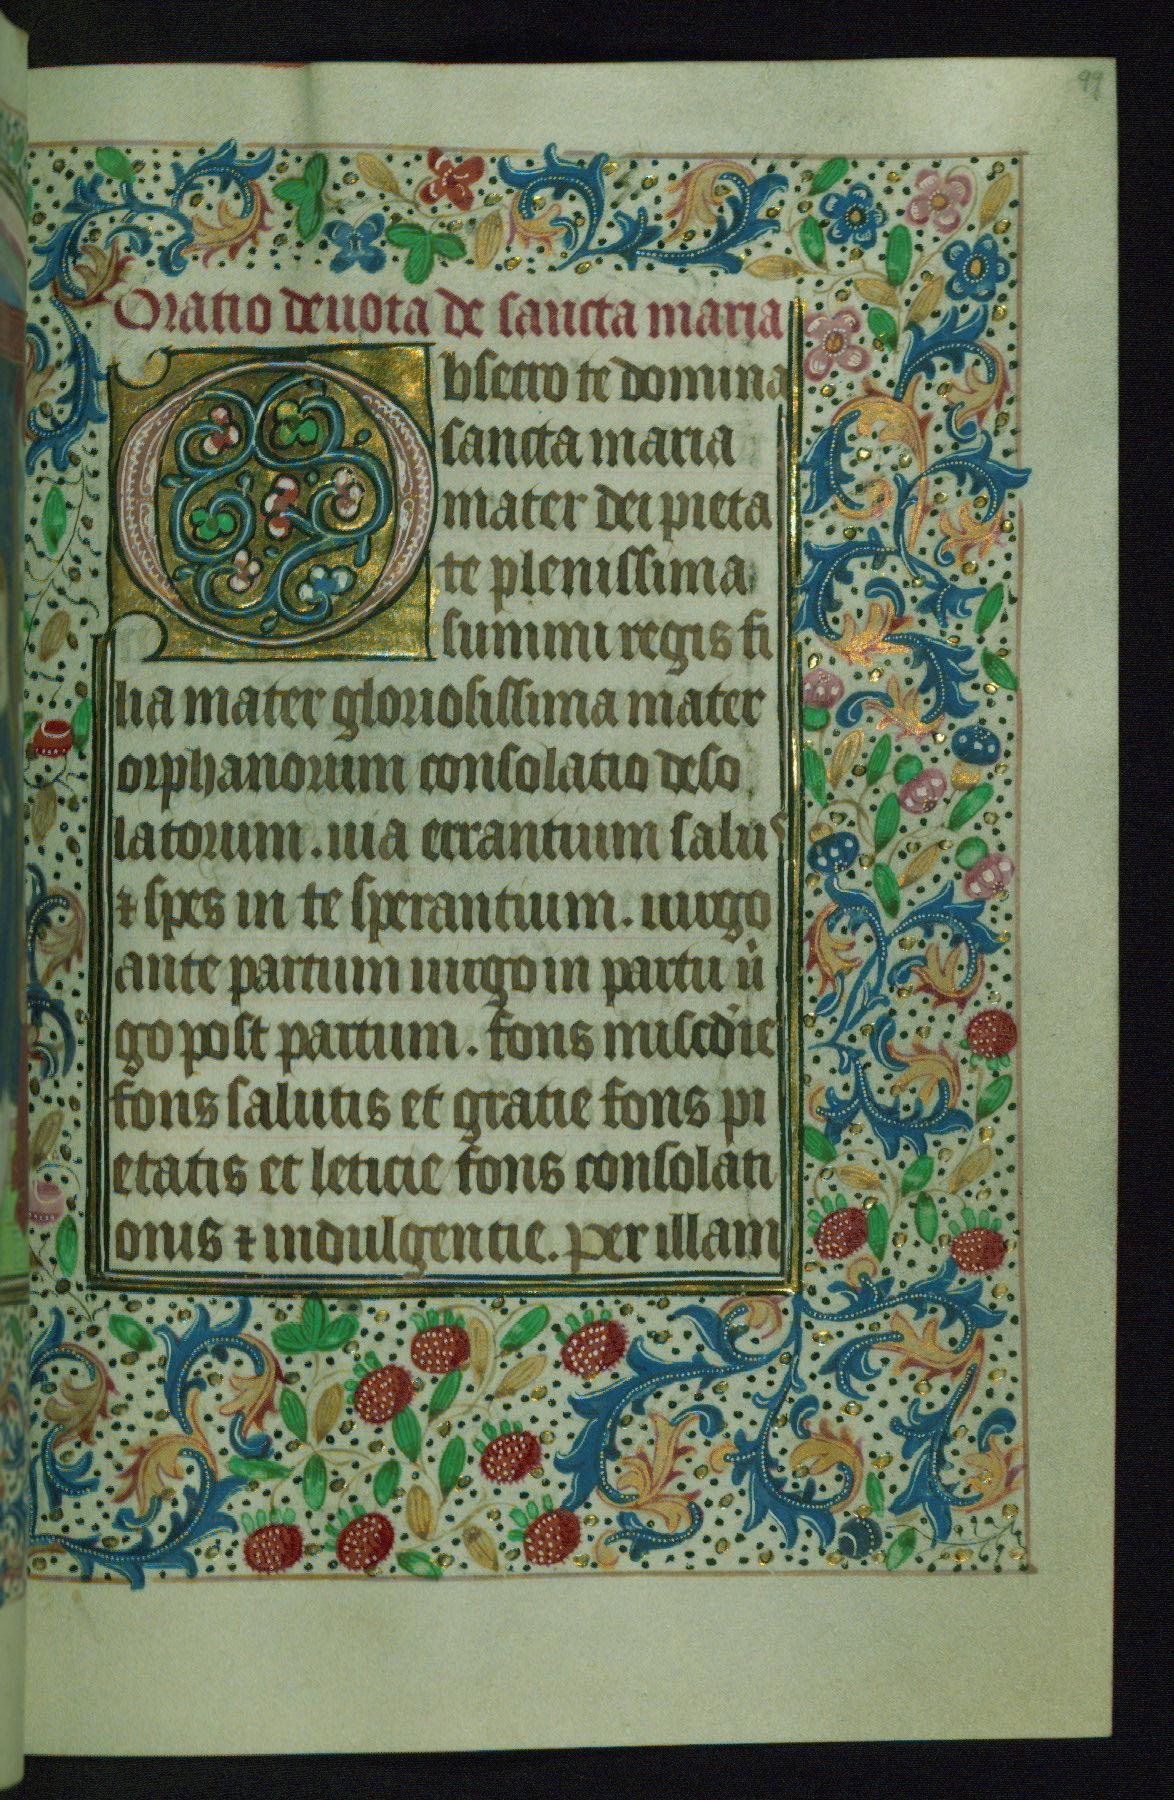 99
Oratio deuota de sancta maria
Obsecro te domina
sancta maria
mater dei pieta
te plenissima
summi regis fi
lia mater gloriosissima mater
orphanorum consolatio deso
latorum. uia errantium salus
⁊ spes in te sperantium. uirgo
ante partum uirgo in partu ũ
go post partum. fons miscd̃ie
fons salutis et gratie fons pi
etatis et leticie fons consolati
onis ⁊ indulgentie. per illam